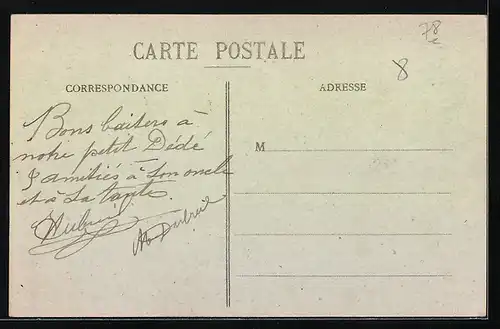 78
CARTE POSTALE
8
CORRESPONDANCE
ADRESSE
Bons baisers à
notre petit Dédé
& amitiés à son oncle
et à sa tante.
M
Dubreuil